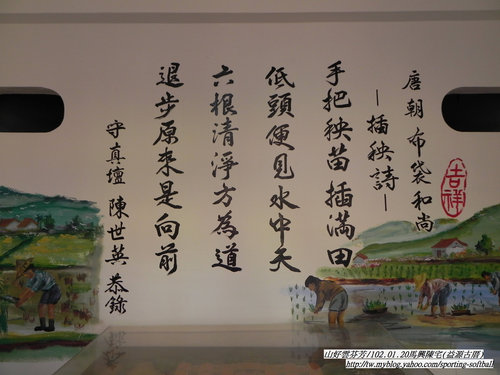 唐朝 布袋和尚
—插秧詩—
吉祥
手把秧苗插滿田
低頭便見水中天
六根清淨方為道
退步原來是向前
守真壇 陳世英 恭錄
山好雲芬芳/102.01.20馬興陳宅(益源古厝)
http://tw.myblog.yahoo.com/sporting-softbal